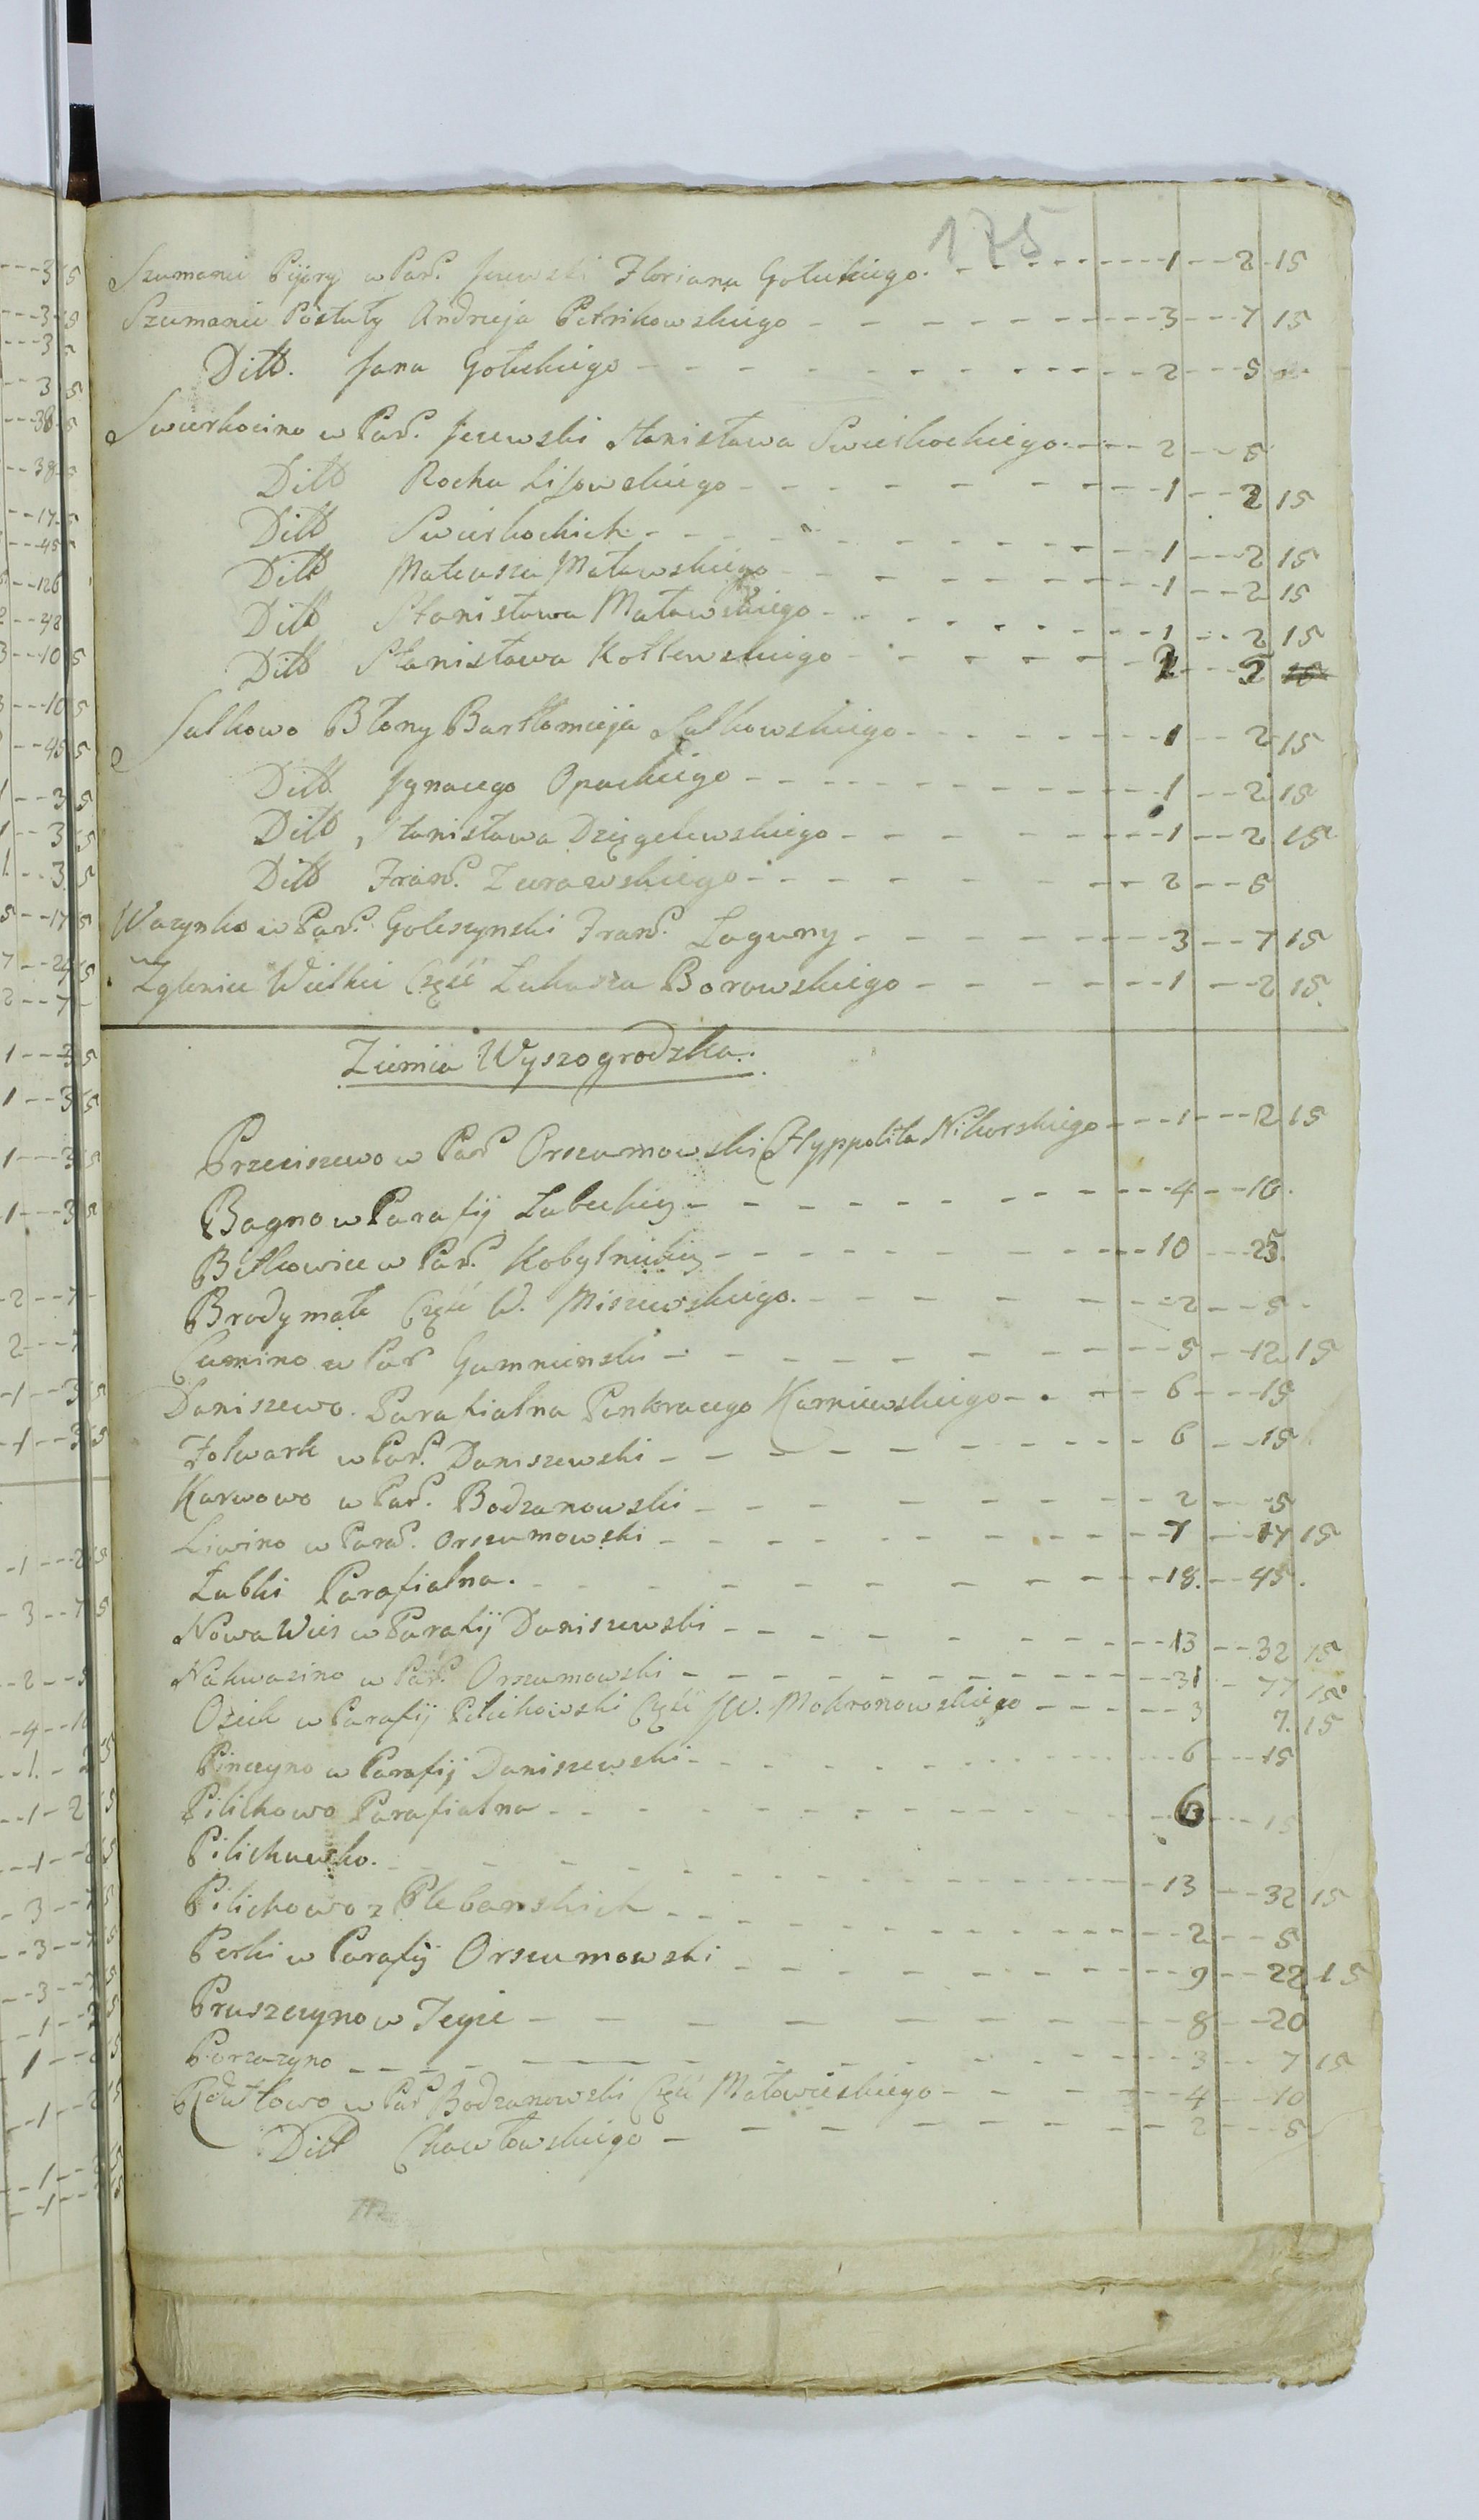 175
Szumanie Pijory w Par. Jezewski Floriana Gołuckiego. 1 2 15
Szumanie Postuły Andrzeja Petrikowskiego 3 7 15
Ditto. Jana Gołuckiego 2 5
Swierkocino w Par. Jezewski Stanisława Swierkockiego. 2 5
Ditto Rocha Lisowskiego 1 2 15
Ditto Swierkockich 1 2 15
Ditto Mateusza Matawskiego 1 2 15
Ditto Stanisława Matawskiego 1 2 15
Ditto Stanisława Kotlewskiego 2 5
Sulkowo Błony Bartłomieja Sulkowskiego 1 2 15
Ditto Jgnacego Opackiego 1 2 15
Ditto, Stanisława Dzięgelewskiego 1 2 15
Ditto Fran. Zurawskiego 2 5
Wozynko w Par. Goleszynski Fran. Laguny 3 7 15
Zglenice Wielkie Część Łukasza Borowskiego 1 2 15
Ziemia Wyszogrodzka.
Przeciszewo w Par Orszumowski Hyppolita Nikorskiego 1 2 15
Bagno w Parafij Łubeckiey 4 10
Bitkowice w Par. Kobylnickiey 10 25
Brody małe Część W. Miszewskiego. 2 5
Cumino w Par Gumninski 5 12 15
Daniszewo. Parafialna Pankracego Karniewskiego 6 15
Folwark w Par. Daniszewski 6 15
Karwowo w Par. Bodzanowski 2 5
Liwino w Para. Orszumowski 7 17 15
Łubki Parafialna. 18. 45.
Nowa Wies w Parafij Daniszewski 13 32 15
Nakwasino w Par. Orszumowski 31 77 15
Osiek w Parafij Pilichowski Część JW. Mokronowskiego 3 7. 15
Pinczyno w Parafij Daniszewski 6 15
Pilichowo Parafialna 6 15
Pilichuwko. 13 32 15
Pilichowo z Plebanskich 2 5
Perki w Parafij Orszumowski 9 22 15
Pruszczyno w Teyze 8 20
Porzezyno 3 7 15
Rowłowo w Par Bodzanowski Część Matowieskiego 4 10
Ditto Chawłowskiego 2 5